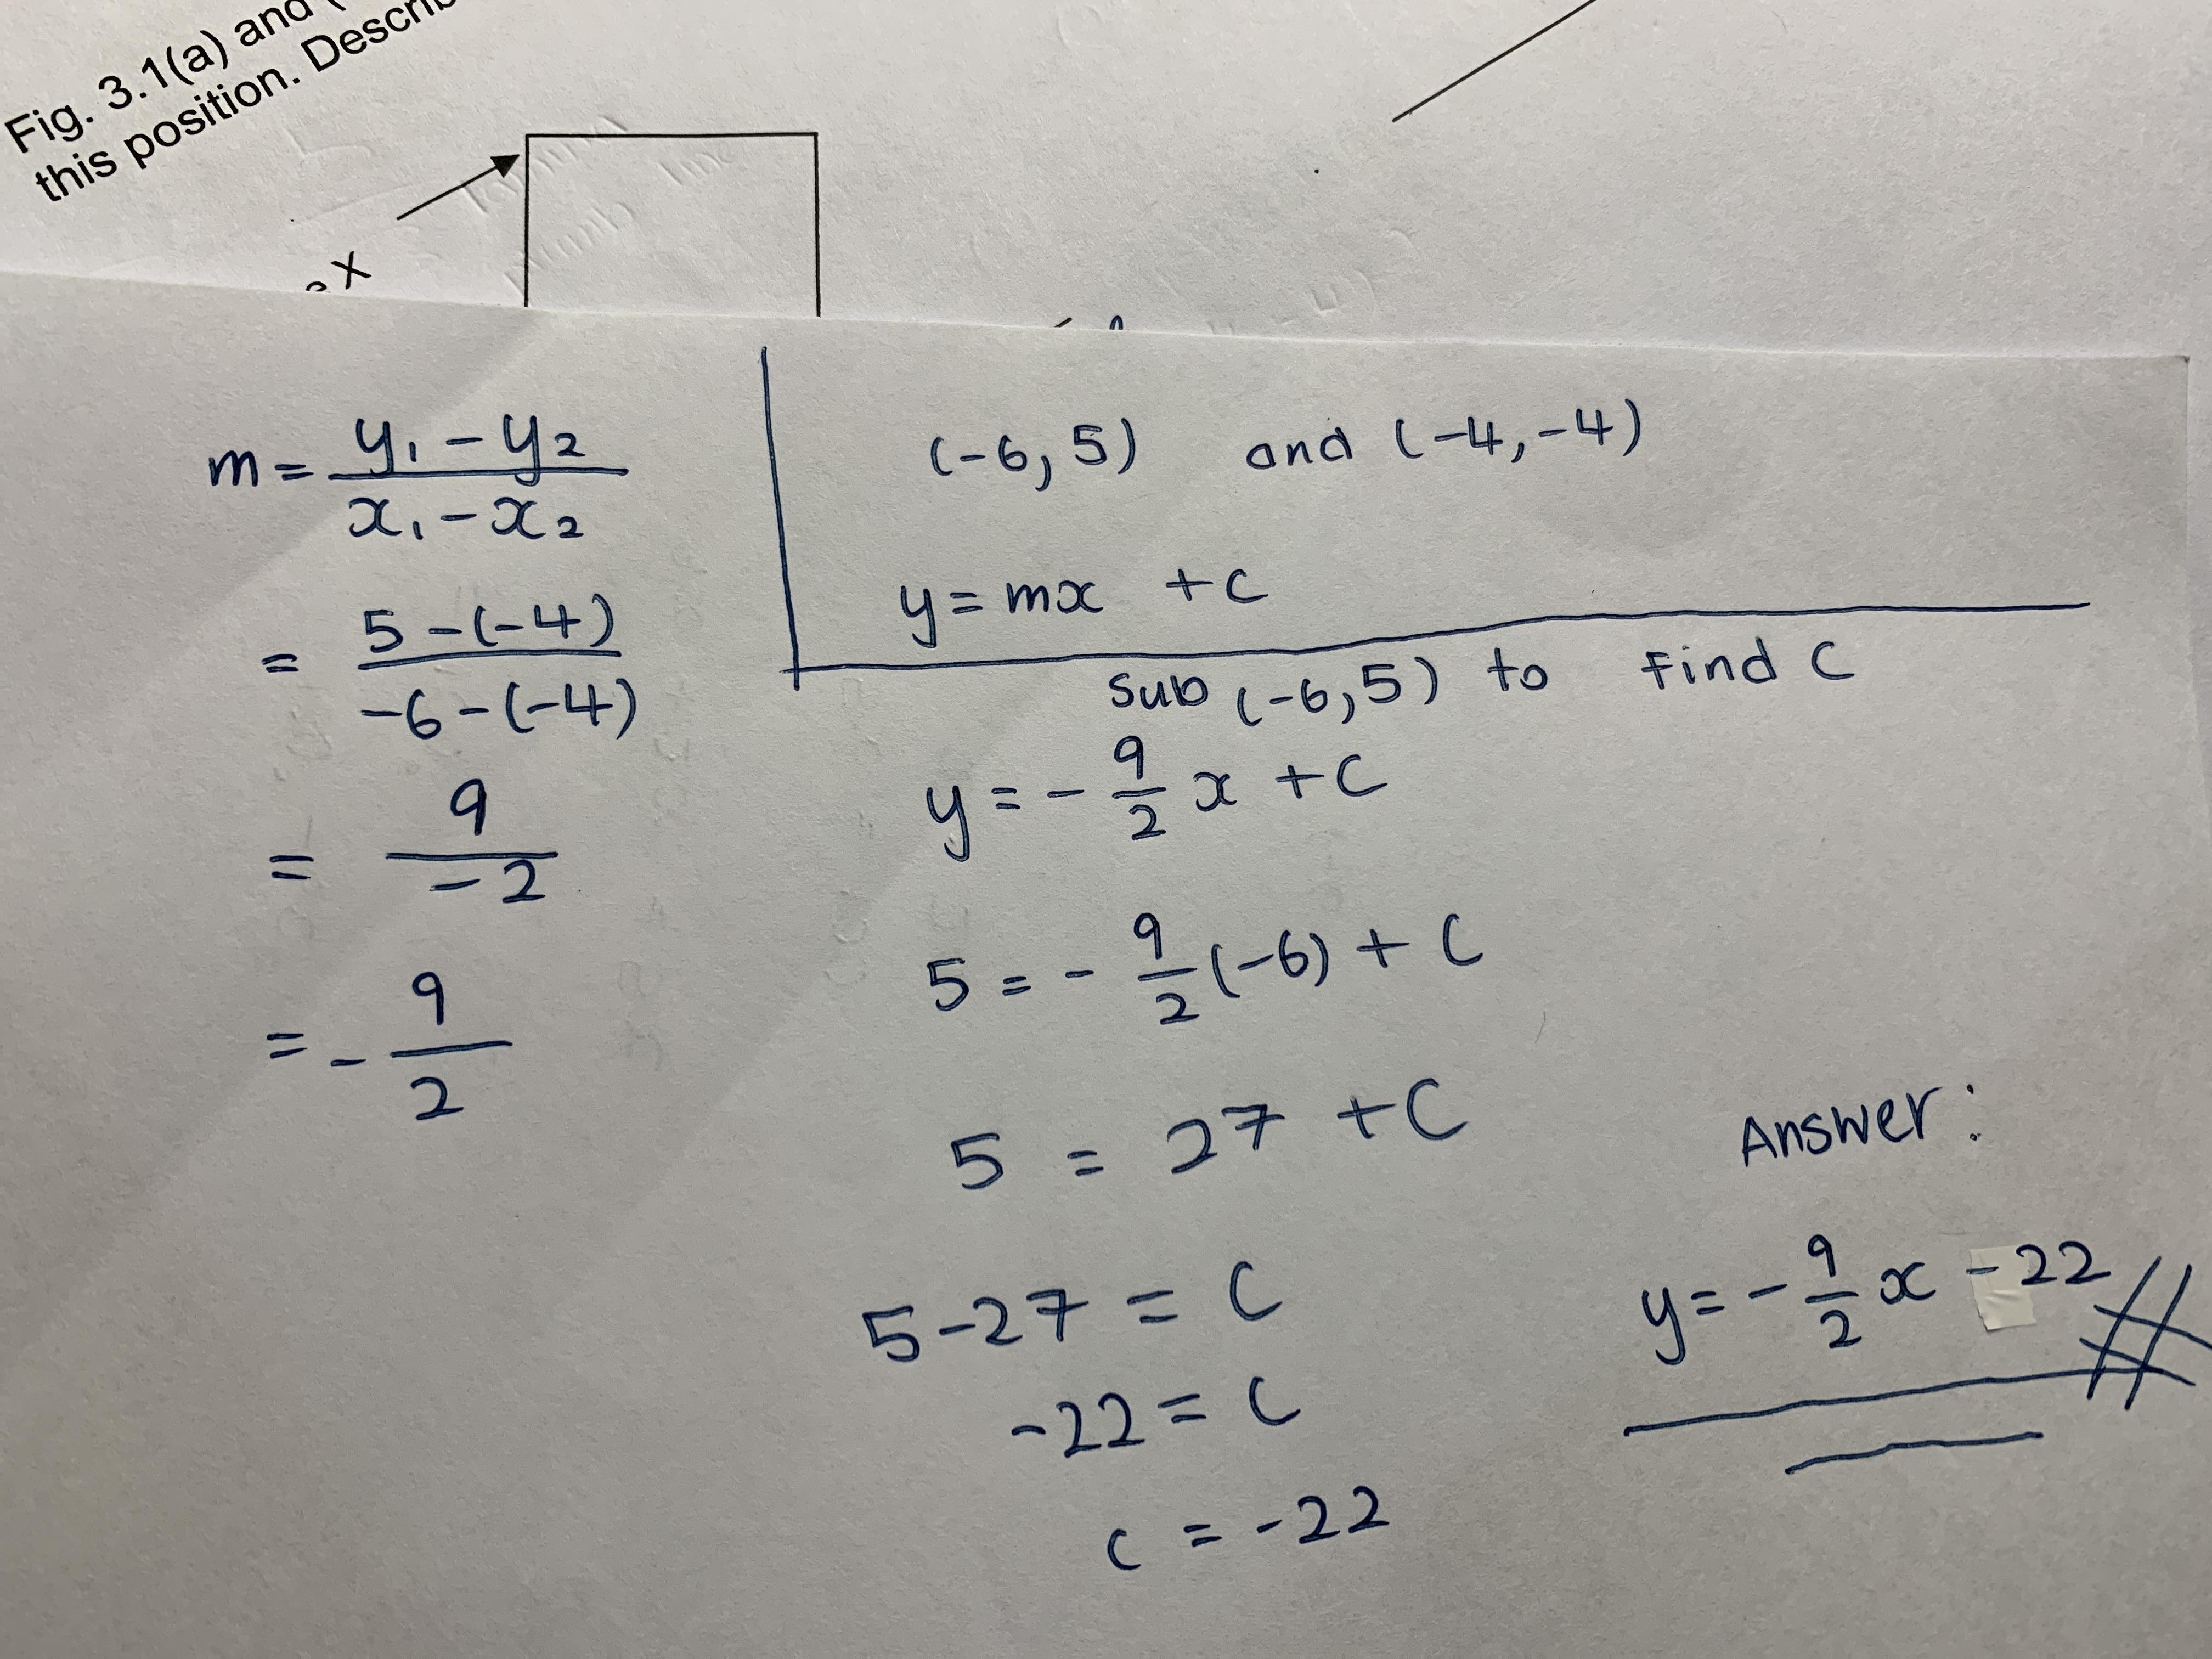 Fig. 3.1(a) and (
this position. Describ
e X
m = \frac{y₁ - y₂}{x₁ - x₂}
= \frac{5 - (-4)}{-6 - (-4)}
= \frac{9}{-2}
= - \frac{9}{2}
(-6, 5) and (-4, -4)
y = mx + c
sub (-6, 5) to find c
y = - \frac{9}{2} x + c
5 = - \frac{9}{2} (-6) + c
5 = 27 + c
5 - 27 = c
-22 = c
c = -22
Answer:
y = - \frac{9}{2} x - 22